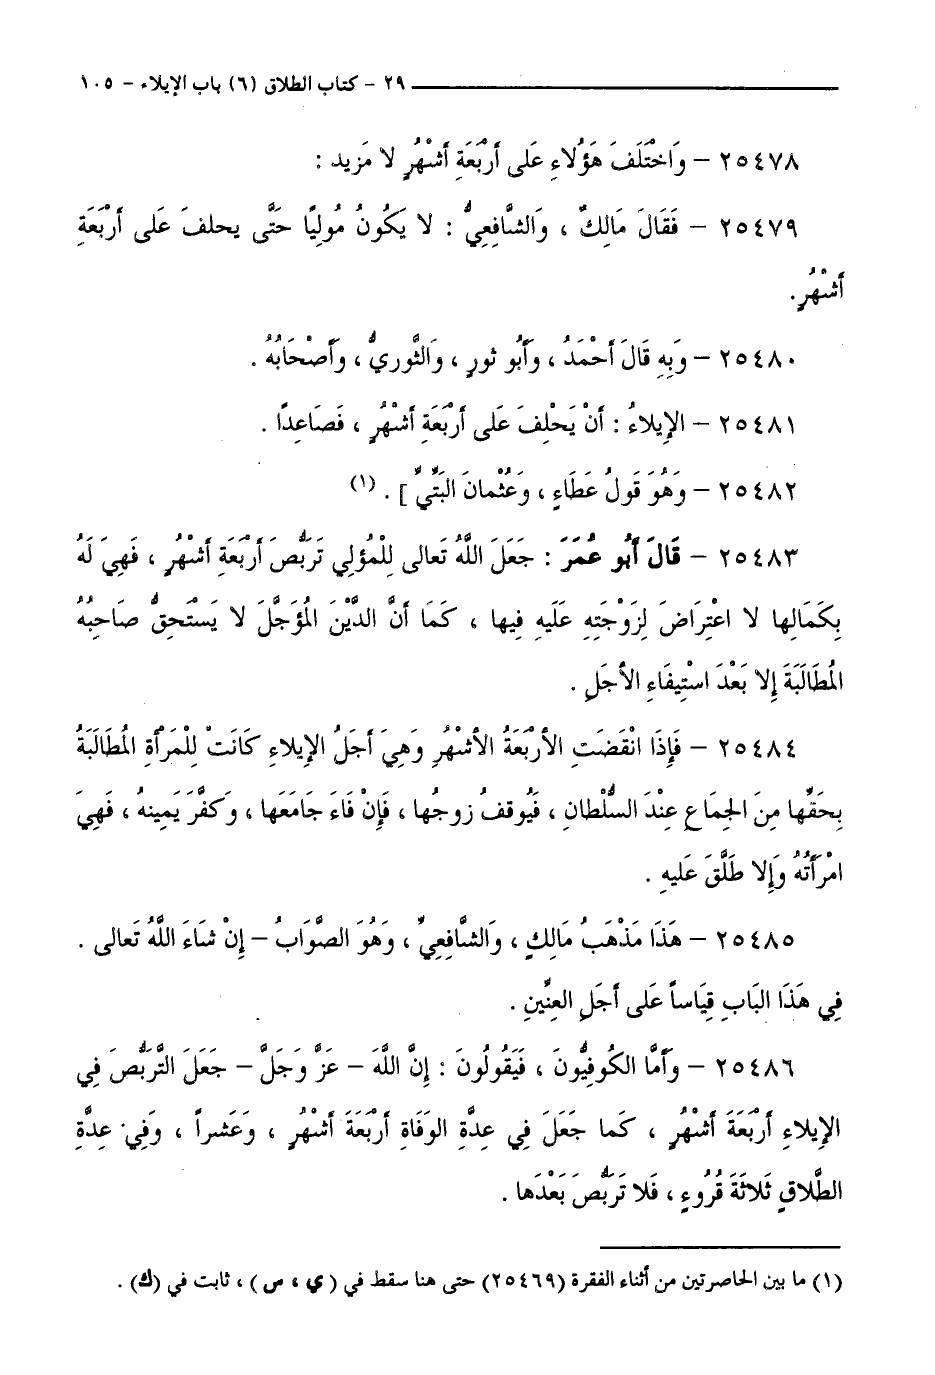 ٢٩ - كتاب الطلاق (٦) باب الإيلاء - ١٠٥
٢٥٤٧٨ - وَاخْتَلَفَ هَؤُلاءِ عَلى أَرْبَعَةِ أَشْهُرٍ لا مَزيد :
٢٥٤٧٩ - فَقَالَ مَالِكٌ ، وَالشَّافِعِيُّ : لا يَكُونُ مُولِيًا حَتَّى يحلفَ عَلى أَرْبَعَةِ
أَشْهُرٍ.
٢٥٤٨٠ - وَبِهِ قَالَ أَحْمَدُ ، وَأَبُو ثورٍ ، وَالثَّوريُّ ، وَأَصْحَابُهُ .
٢٥٤٨١ - الإيلاءُ : أَنْ يَحْلِفَ عَلى أَرْبَعَةِ أَشْهُرٍ ، فَصَاعِدًا .
٢٥٤٨٢ - وَهُوَ قَولُ عَطَاءٍ ، وَعُثْمانَ البَتِّيِّ ] . (١)
٢٥٤٨٣ - قَالَ أَبُو عُمَرَ : جَعَلَ اللَّهُ تَعالى لِلْمُؤلِي تَرَبُّصَ أَرْبَعَةِ أَشْهُرٍ ، فَهِيَ لَهُ
بِكَمَالِها لا اعْتِرَاضَ لِزَوْجَتِهِ عَلَيهِ فِيها ، كَمَا أَنَّ الدَّيْنَ المُؤَجَّلَ لا يَسْتَحِقُّ صَاحِبُهُ
المُطَالَبَةَ إِلا بَعْدَ اسْتِيفَاءِ الأَجَلِ .
٢٥٤٨٤ - فَإِذَا انْقَضَتِ الأَرْبَعَةُ الأَشْهُرِ وَهِيَ أَجَلُ الإيلاءِ كَانَتْ لِلْمَرْأَةِ المُطَالَبَةُ
بِحَقِّها مِنَ الجِمَاعِ عِنْدَ السُّلْطانِ ، فَيُوقفُ زوجُها ، فَإِنْ فَاءَ جَامَعَها ، وَكَفَّرَ يَمِينهُ ، فَهِيَ
امْرَأَتُهُ وَإِلا طَلَّقَ عَليهِ .
٢٥٤٨٥ - هَذَا مَذْهَبُ مَالِكٍ ، وَالشَّافِعِيِّ ، وَهُوَ الصَّوَابُ - إِنْ شَاءَ اللَّهُ تَعالى .
فِي هَذَا البَابِ قِيَاساً عَلى أَجَلِ العِنِّينِ .
٢٥٤٨٦ - وَأَمَّا الكُوفِيُّونَ ، فَيَقُولُونَ : إِنَّ اللَّهَ - عَزَّ وَجَلَّ - جَعَلَ التَّرَبُّصَ فِي
الإِيلاءِ أَرْبَعَةَ أَشْهُرٍ ، كَما جَعَلَ فِي عِدَّةِ الوَفَاةِ أَرْبَعَةَ أَشْهُرٍ ، وَعَشراً ، وَفِي عِدَّةِ
الطَّلاقِ ثَلاثَةَ قُرُوءٍ ، فَلا تَرَبُّصَ بَعْدَها .
(١) ما بين الحاصرتين من أثناء الفقرة (٢٥٤٦٩) حتى هنا سقط في ( ي ، ص ) ، ثابت في (ك) .